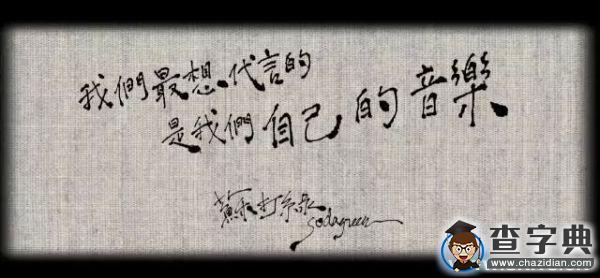 我們最想代言的
是我們自己的音樂
蘇打綠
sodagreen
查字典
www.chazidian.com